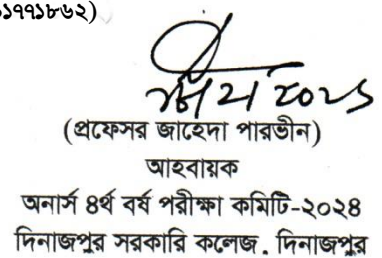 ১৭৭১৮৬২)
(প্রফেসর জাহেদা পারভীন)
আহবায়ক
অনার্স ৪র্থ বর্ষ পরীক্ষা কমিটি-২০২৪
দিনাজপুর সরকারি কলেজ, দিনাজপুর